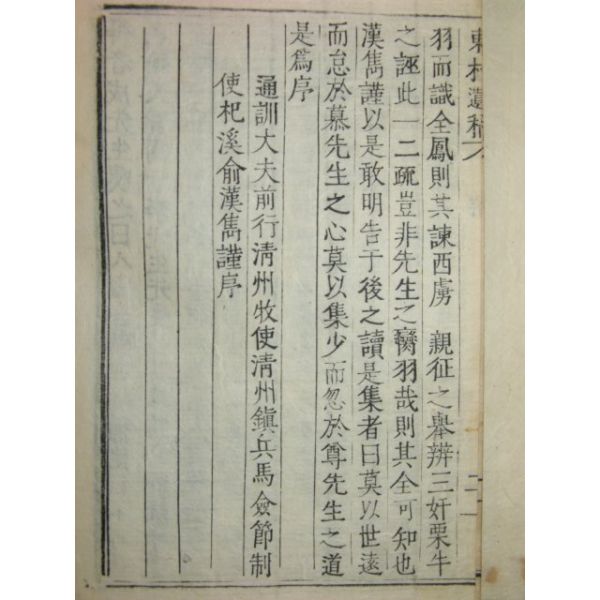 東村遺稿 二
羽而識全鳳則其諫西虜 親征之擧辨三奸栗牛
之誣此一二疏豈非先生之臠羽哉則其全可知也
漢雋謹以是敢明告于後之讀是集者曰莫以世遠
而怠於慕先生之心莫以集少而忽於尊先生之道
是爲序
通訓大夫前行淸州牧使淸州鎭兵馬僉節制
使杞溪俞漢雋謹序